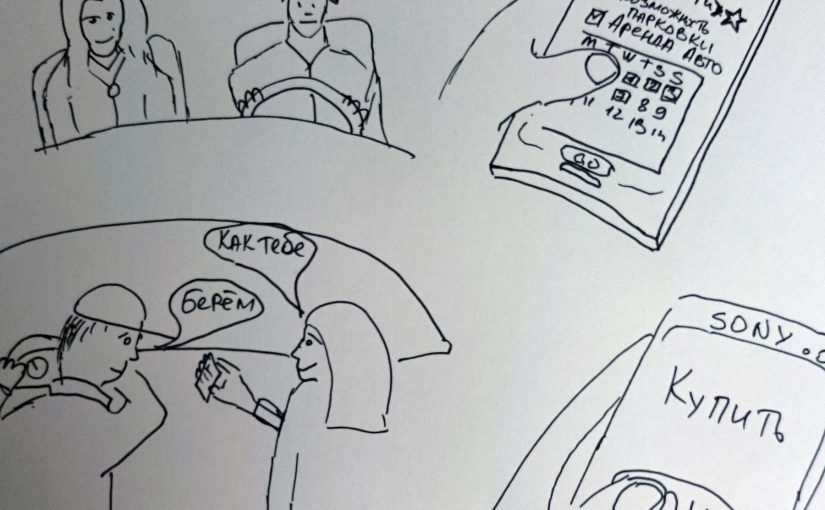 ВОЗМОЖНУТЬ
ПАРКОВКИ
АРЕНДА АВТО
M T W T S S
1 2 3
7 8 9
11 12 13 14
GO
КАК ТЕБЕ
БЕРЁМ
SONY
Купить